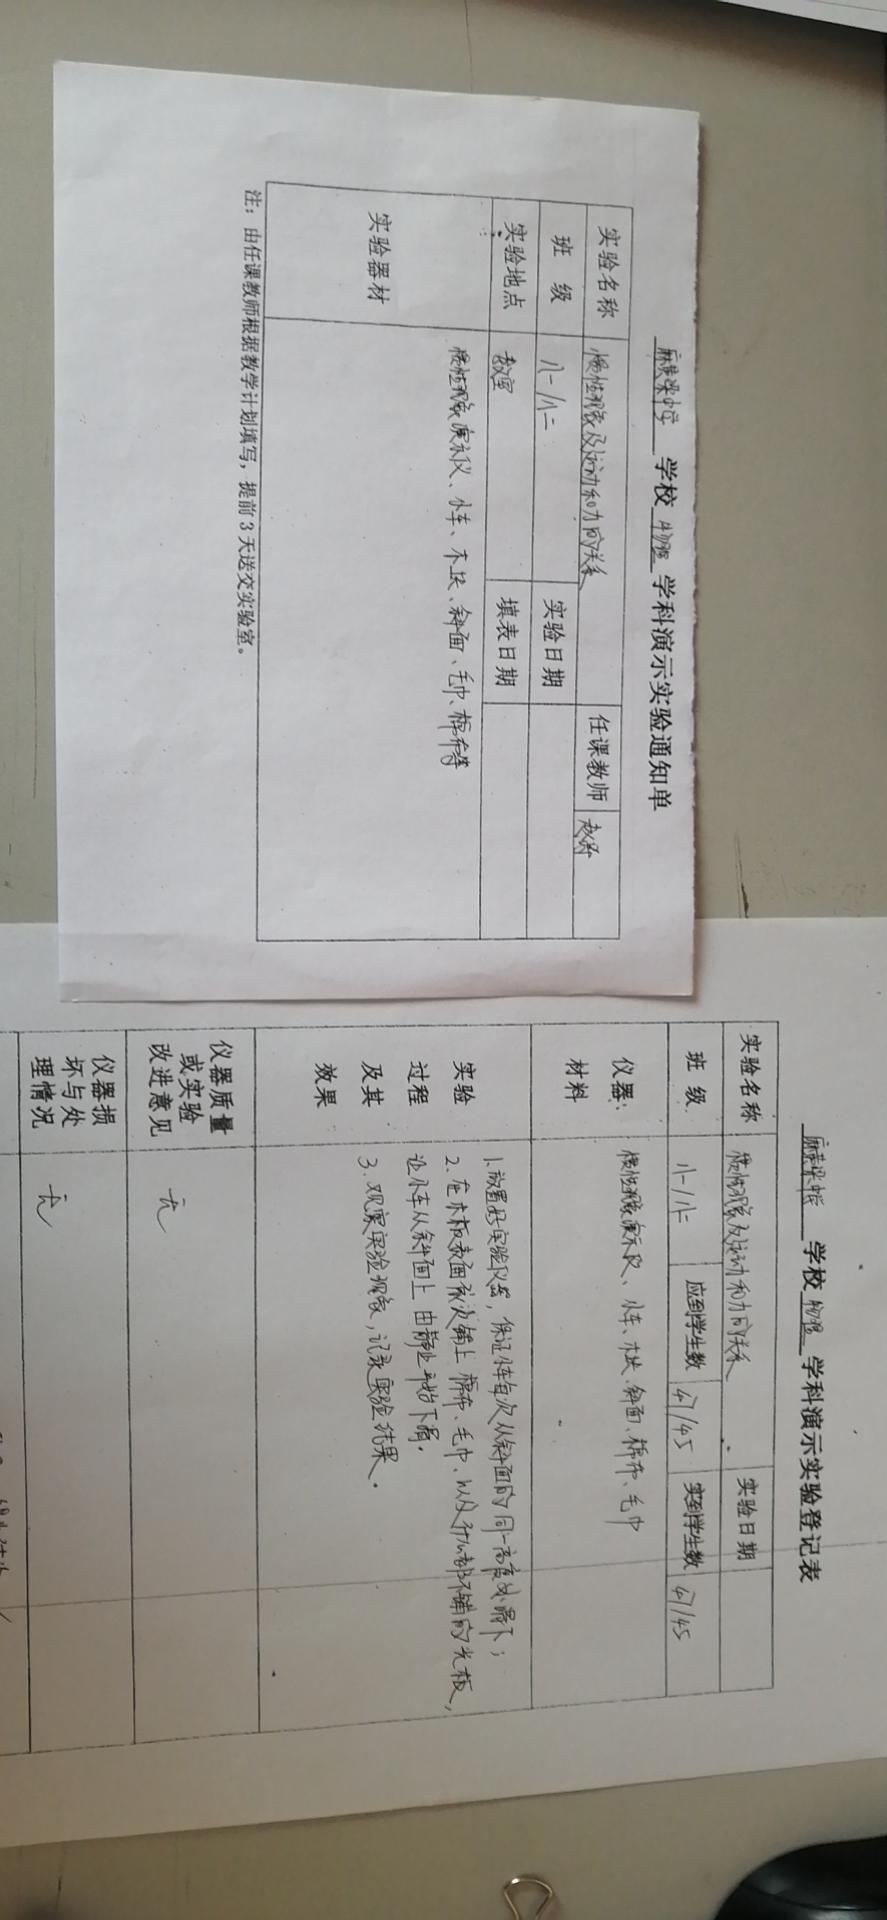 学校 物理 学科演示实验通知单
实验名称 惯性现象及运动和力的关系 任课教师
班 级 八一/八二 实验日期
实验地点 教室 填表日期
实验器材 惯性现象演示仪、小车、木块、斜面、毛巾、棉布等
注：由任课教师根据教学计划填写，提前3天送交实验室。
学校 物理 学科演示实验登记表
实验名称 惯性现象及运动和力的关系 实验日期
班 级 八一/八二 应到学生数 47/45 实到学生数 47/45
仪器: 材料 惯性现象演示仪、小车、木块、斜面、棉布、毛巾
实验过程及其效果
1.放置好实验仪器，保证小车每次从斜面的同一高度处滑下；
2.在木板表面依次铺上棉布、毛巾、以及什么都不铺的光板，
让小车从斜面上由静止开始下滑。
3.观察实验现象，记录实验结果。
仪器质量或实验改进意见 无
仪器损坏与处理情况 无